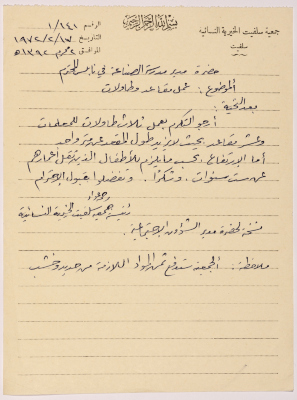 بسم الله الرحمن الرحيم
جمعية سلفيت الخيرية النسائية
سلفيت
الرقم ١٢١/١
التاريخ ١٩٧٢/٢/١٧
الموافق ٢ محرم ١٣٩٢ هـ
حضرة مدير مدرسة الصناعة في نابلس المحترم
الموضوع : عمل مقاعد وطاولات
بعد التحية :
أرجو التكرم بعمل ثلاث طاولات للمعلمات
وعشر مقاعد بحيث لا يزيد طول المقعد عن متر واحد
أما الارتفاع بحسب ما يلزم للأطفال الذين تقل أعمارهم
عن ست سنوات . وشكراً . وتفضلوا بقبول الاحترام
رئيسة جمعية سلفيت الخيرية النسائية
نسخة لحضرة مدير الشؤون الاجتماعية
ملاحظة : الجمعية ستدفع ثمن المواد اللازمة من حديد وخشب